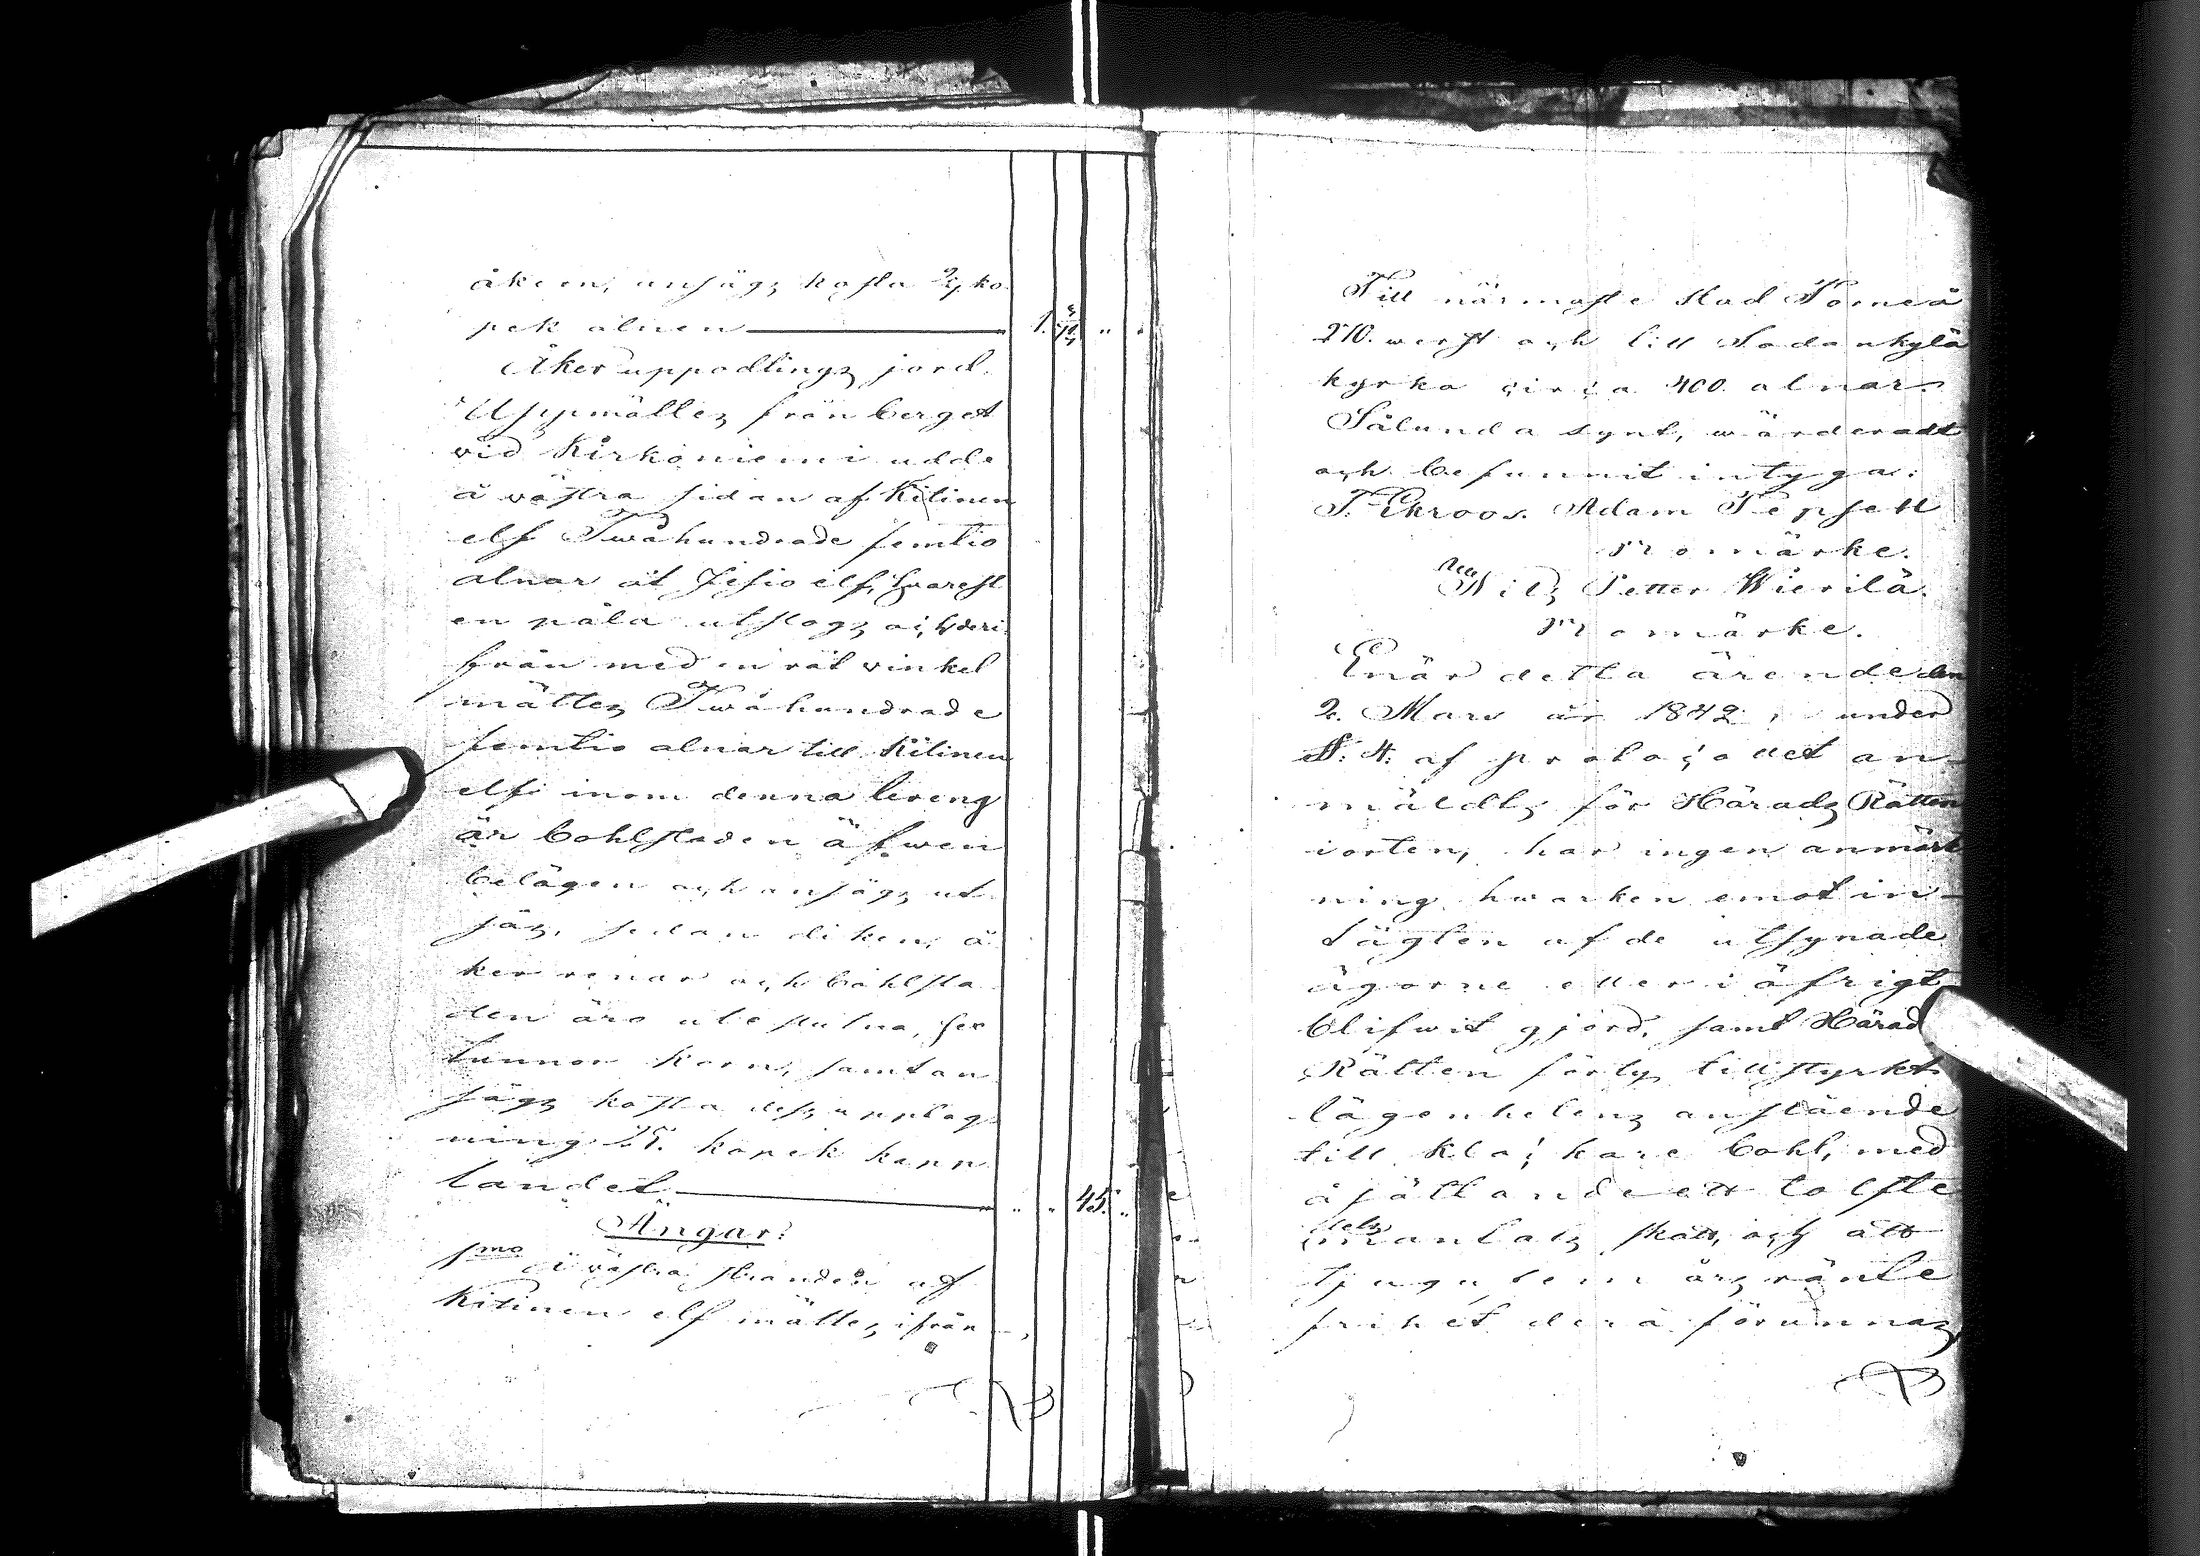 åkern, ansågs kosta 2/7 ko
pek alnen 1.
Åker uppodlings jord.
Uppmältes från berget
vid Kirkoniemi udde
å västra sidan af Kitinen
elf Twåhundrade femtio
alnar åt Jesio elf, hvarest
en påla utslogs och deri
från med en rät vinkel
mältes Twåhundrade
femtio alnar till Kitinen
elf inom denna
är bohlstaden äfwen
belägen och ansågs ut
sås, sedan diken, å
ker renar och bohlsta
den äro uteslutna, sex
tunnor Korn, samt an
sågs kosta dess upptag
ning 25. kopek kapp
landet 45.
Ängar:
1mo å västra stranden af
Kitinen elf mältes, ifrån
Till närmaste stad Torneå
270. werst och till Sodankylä
kyrka circa 400. alnar.
Sålunda synt, wärderadt
och befunnit intyga:
J. Ekroos. Adam Pepsell
Bomärke.
Nils Petter Wierilä.
Bomärke.
Enär detta ärende den
2. Mars år 1842, under
N: 4: af protocollet an-
mäldts för Härads Rätten
i orten, har ingen anmärk
ning hwarken emot in-
tägten af de utsynade
ägorne eller i öfrigt
blifwit gjord, samt Härads
Rätten förty tillstyrkt
lägenhetens anslående
till Klockare bohl, med
åsättande ett tolfte
dels mantals skatt, och att
tjugufem års ränte
frihet derå förunnas